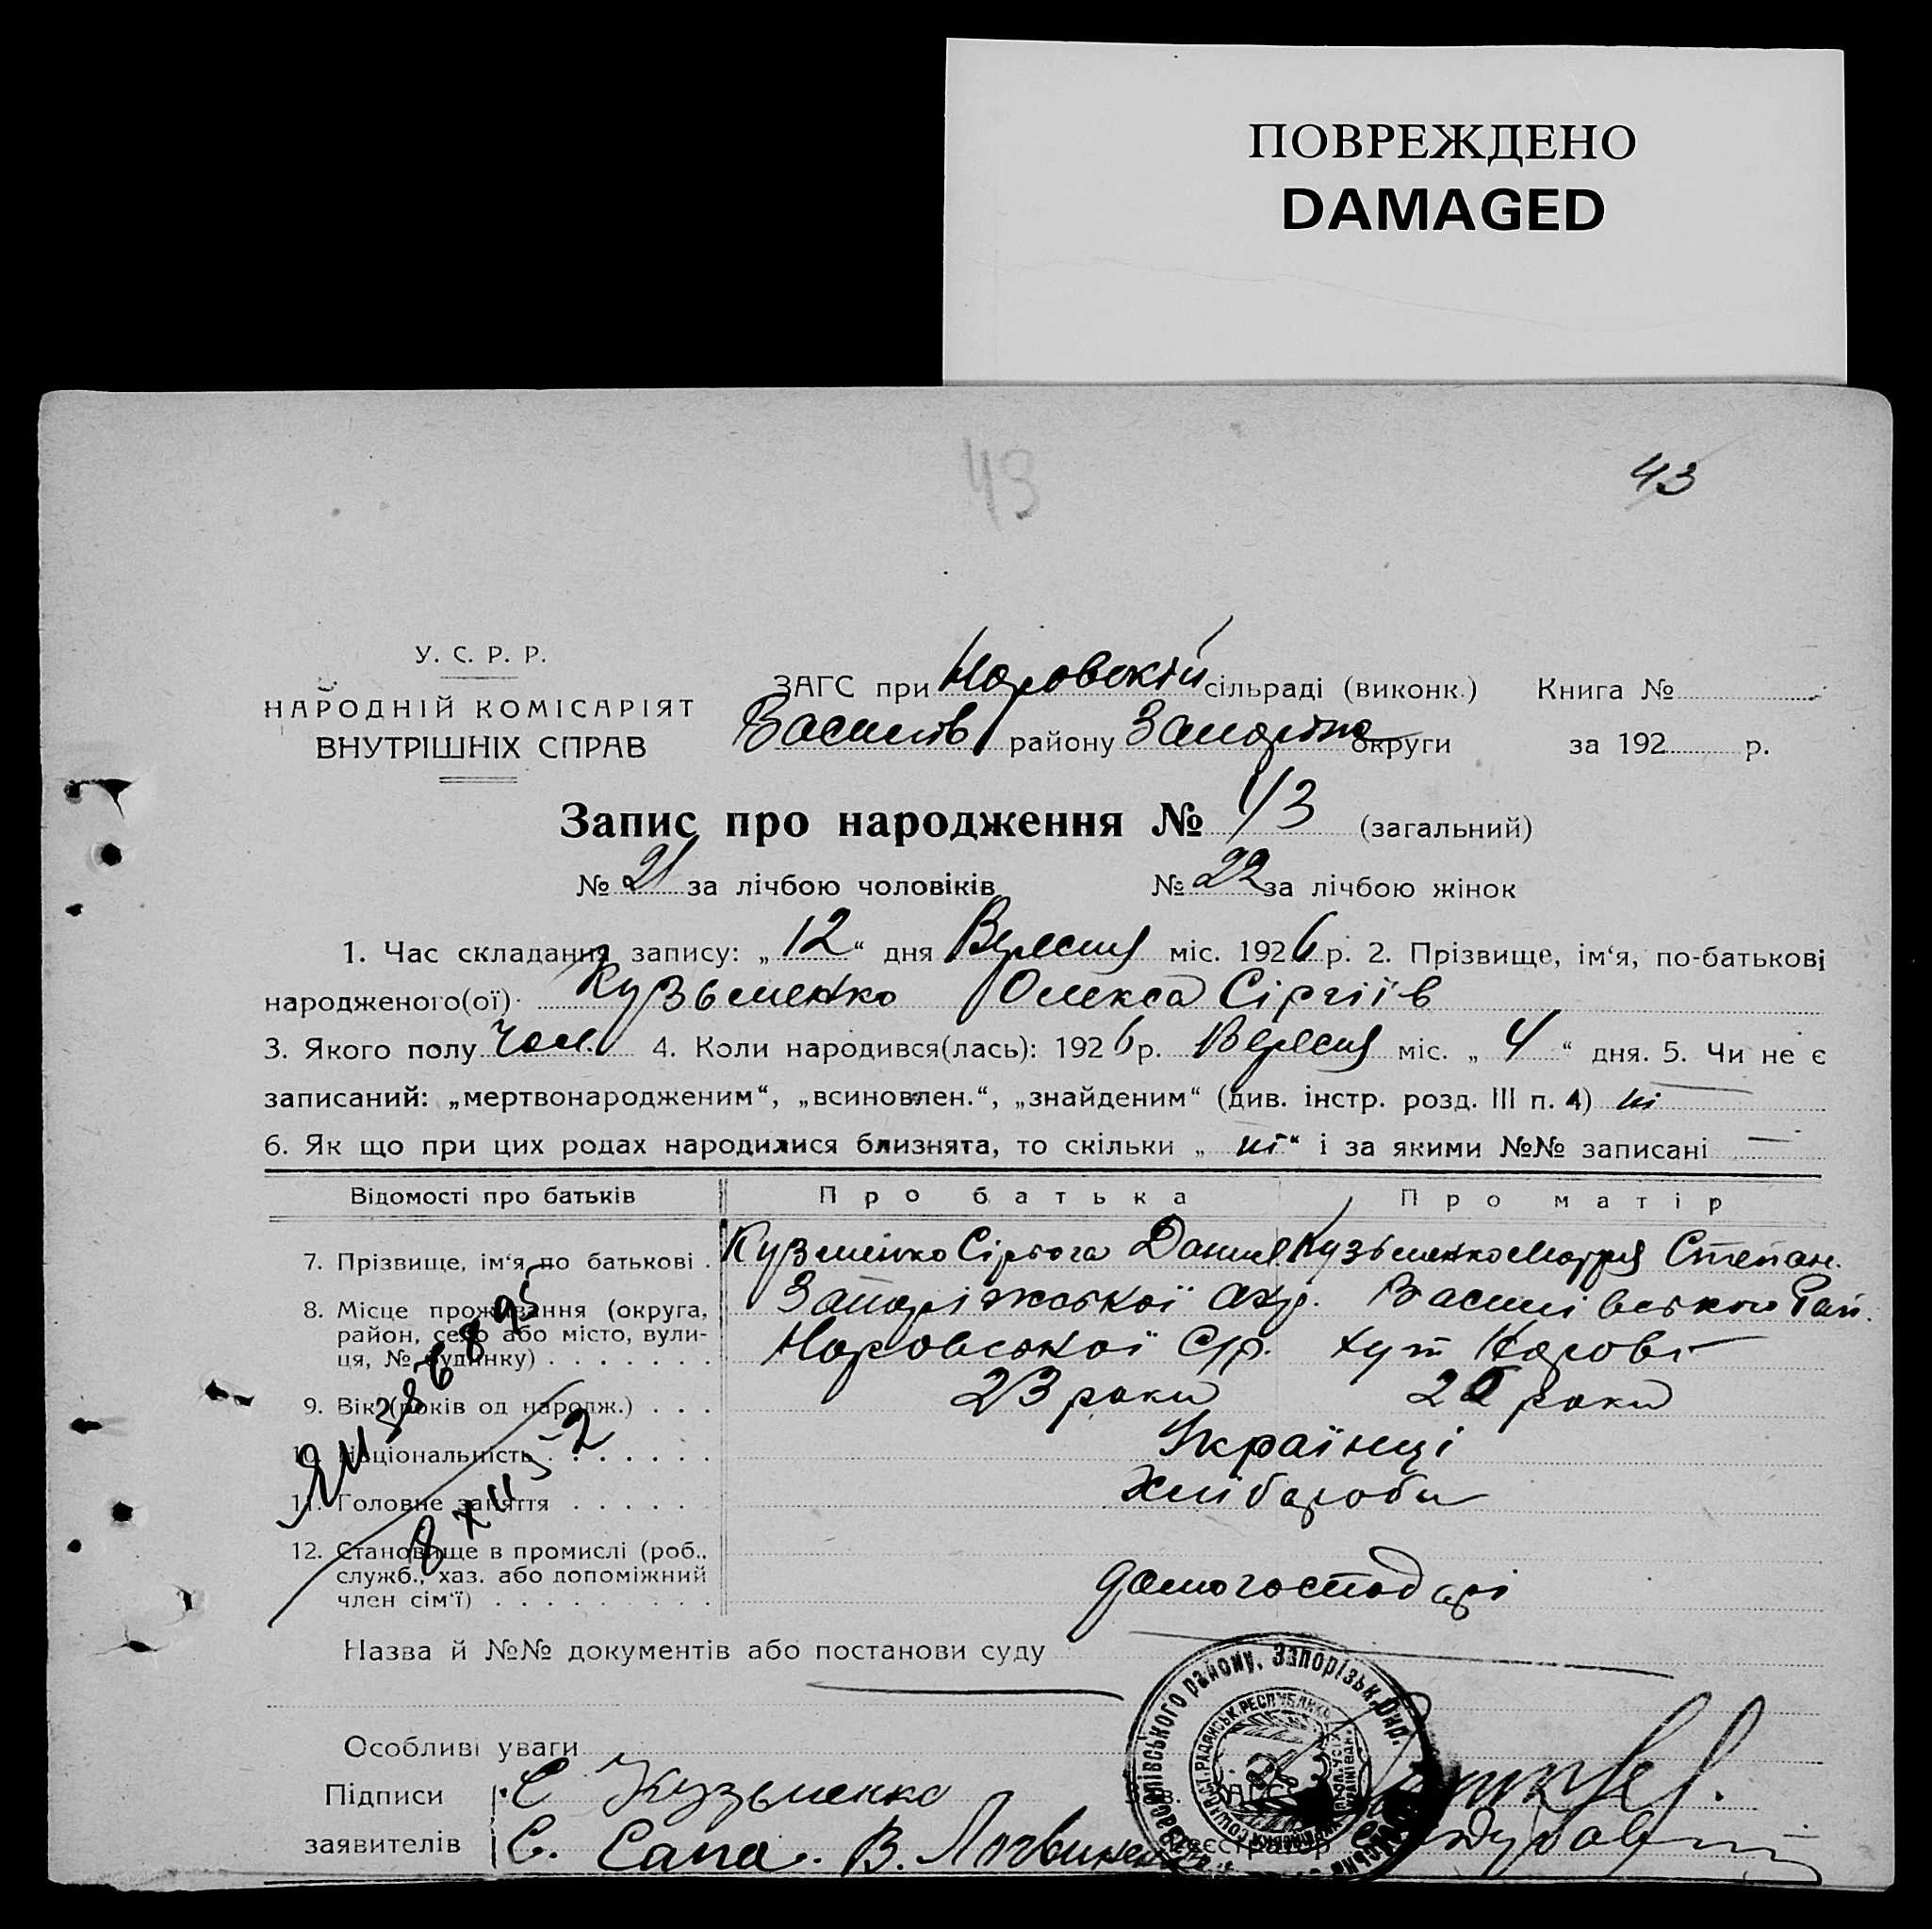 ПОВРЕЖДЕНО
DAMAGED
43
43
У. С. Р. Р.
НАРОДНІЙ КОМІСАРІЯТ
ВНУТРІШНІХ СПРАВ
ЗАГС при сільраді (виконк.) Книга №
Василів району Запоріжо округи за 192 р.
Запис про народження № 43 (загальний)
№ 21 за лічбою чоловіків № 22 за лічбою жінок
1. Час складання запису: „ 12 “ дня Вересня міс. 1926 р. 2. Прізвище, ім‘я, по-батькові
народженого(ої) Кузьменко Олекса Сіргіїв
3. Якого полу Чол. 4. Коли народився(лась): 1926 р. Вересня міс. „ 4 “ дня. 5. Чи не є
записаний: „мертвонародженим“, „всиновлен.“, „знайденим“ (див. інстр. розд. III п. 4) ні
6. Як що при цих родах народилися близнята, то скільки „ ні “ і за якими №№ записані —
Відомості про батьків Про батька Про матір
7. Прізвище, ім‘я по батькові . Кузменко Сірьога Данил. Кузьменко Марія Степан.
8. Місце проживання (округа, Запоріжської окр. Василівського Рай.
район, село або місто, вули-
ця, № будинку) . . . . . . . Ср. хут
9. Вік (років од народж.) . . . 23 роки роки
10. Національність . . . . . . . Українці
11. Головне заняття . . . . . Хлібароби
12. Становище в промислі (роб.,
служб., хаз. або допоміжний
член сім‘ї) . . . . . . . . . домогосподарі
8 XII 52
Назва й №№ документів або постанови суду
Особливі уваги
Підписи С Кузьменко
заявителів С. Сапа. В. Логвиненко
Реєстратор
Василівського району, Запорізьк. Окр.